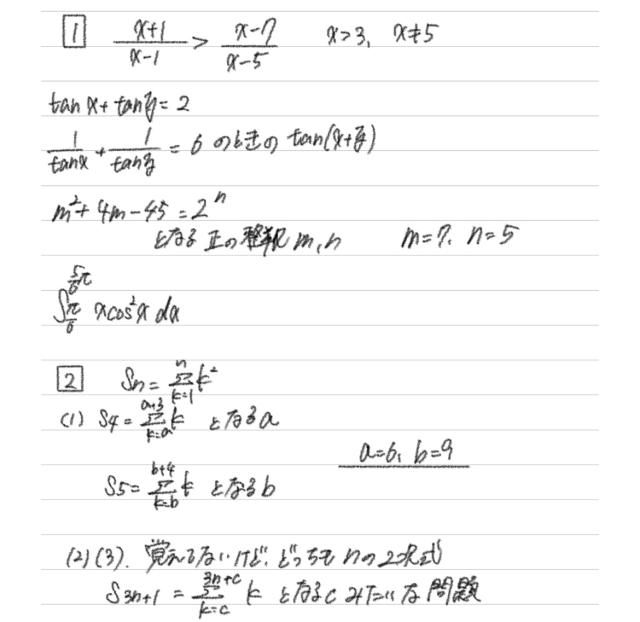 1 (x+1)/(x-1) > (x-7)/(x-5) x>3, x≠5
tan x + tan y = 2
1/tanx + 1/tany = 6 のときの tan(x+y)
m²+4m-45=2ⁿ
となる 正の整数 m,n m=7, n=5
∫_{π/6}^{5/6π} x cos²x dx
2 Sn = Σ_{k=1}^{n} k²
(1) S4 = Σ_{k=a}^{a+3} k となるa
a=6, b=9
S5 = Σ_{k=b}^{b+4} k となるb
(2)(3). 覚えてないけど、どっちも nの2次式
S3n+1 = Σ_{k=c}^{3n+c} k となるc みたいな問題